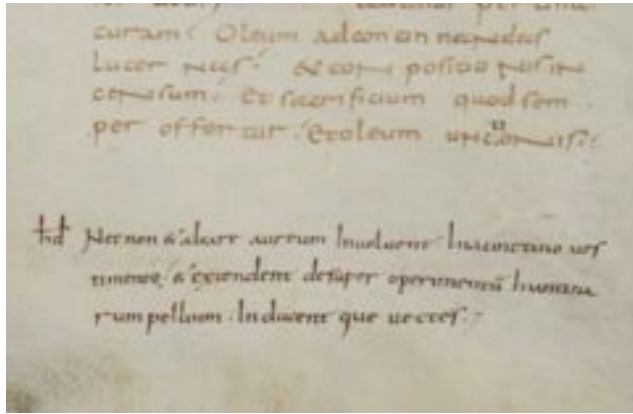 curam. Oleum ad concinnandas
lucernas. & compositionis in
censum. Et sacrificium quod sem
per offertur. Et oleum unctionis.
hd Nec non & altare aureum Involvent hiacinctino ves
timento. & extendent desuper operimentum hianthi
rum pellium. Inducent que vectes.